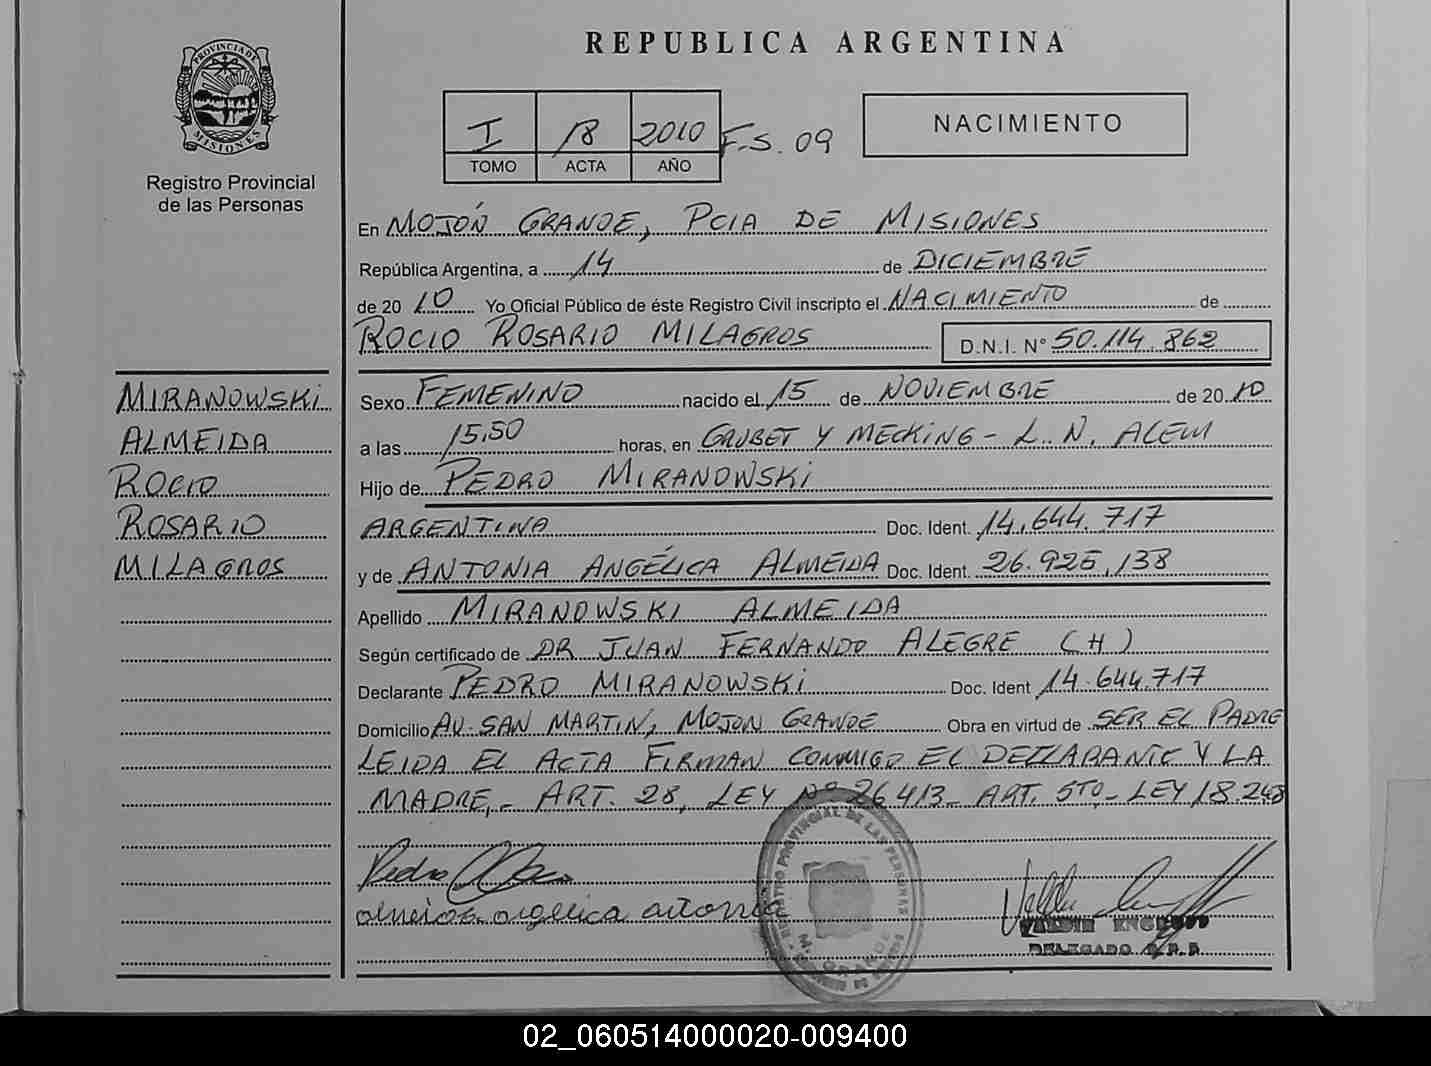 PROVINCIA DE
MISIONES
Registro Provincial
de las Personas
MIRANOWSKI
ALMEIDA
ROCIO
ROSARIO
MILAGROS
REPUBLICA ARGENTINA
I 18 2010 F.S. 09
TOMO ACTA AÑO
NACIMIENTO
En MOJÓN GRANDE, PCIA DE MISIONES
República Argentina, a 14 de DICIEMBRE
de 2010 Yo Oficial Público de éste Registro Civil inscripto el NACIMIENTO de
ROCIO ROSARIO MILAGROS D.N.I. N° 50.114.862
Sexo FEMENINO nacido el 15 de NOVIEMBRE de 2010
a las 15,50 horas, en GRUBET Y MECKING - L. N. ALEM
Hijo de PEDRO MIRANOWSKI
ARGENTINA Doc. Ident. 14.644.717
y de ANTONIA ANGÉLICA ALMEIDA Doc. Ident. 26.925.138
Apellido MIRANOWSKI ALMEIDA
Según certificado de DR JUAN FERNANDO ALEGRE (H)
Declarante PEDRO MIRANOWSKI Doc. Ident 14.644.717
Domicilio AV. SAN MARTIN, MOJON GRANDE Obra en virtud de SER EL PADRE
LEIDA EL ACTA FIRMAN CONMIGO EL DECLARANTE Y LA
MADRE.- ART. 28, LEY Nº 26413- ART. 5TO.- LEY 18.248
Pedro
almeida angelica antonia
REGISTRO PROVINCIAL DE LAS PERSONAS
M. GRANDE
DELEGADO R.P.P.
02_060514000020-009400